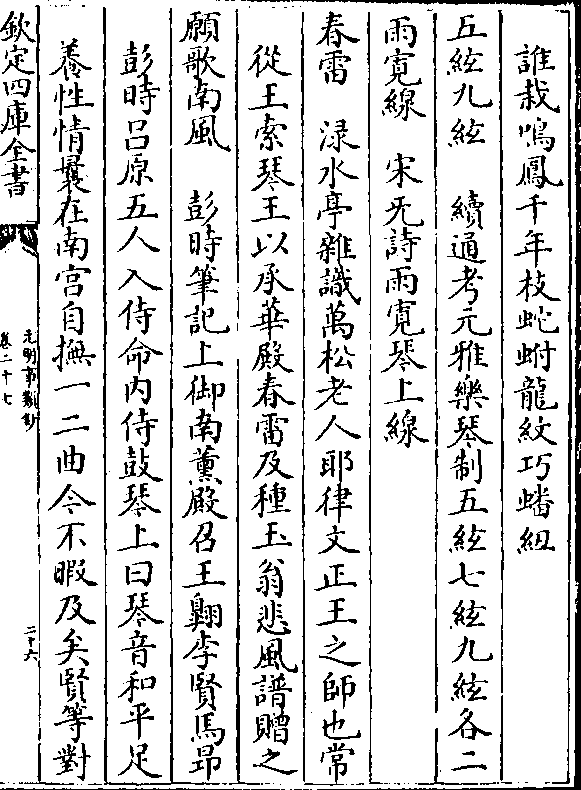 誰栽鳴鳳千年枝蛇蚹龍紋巧蟠紐
五絃九絃　續通考元雅樂琴制五絃七絃九絃各二
雨寛線　宋旡詩雨寛琴上線
春雷　渌水亭雜識萬松老人耶律文正王之師也常
從王索琴王以承華殿春雷及種玉翁悲風譜贈之
願歌南風　彭時筆記上御南薰殿召王翺李賢馬昻
彭時吕原五人入侍命内侍鼓琴上曰琴音和平足
養性情曩在南宫自撫一二曲今不暇及矣賢等對
欽定四庫全書
元明事類鈔
卷二十七
二十六